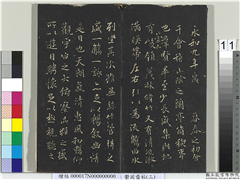 永和九年歲 暮春之初會
于會稽山陰之蘭亭脩稧事
也群賢畢至少長咸集此地
有峻領茂林脩竹又有清流激
湍暎帶左右引以為流觴曲水
列坐其次雖無絲竹管弦之
盛一觴一詠亦足以暢敘幽情
是日也天朗氣清惠風和暢仰
觀宇宙之大俯察品類之盛
所以遊目騁懷足以極視聽之
000017N000000006 (三)